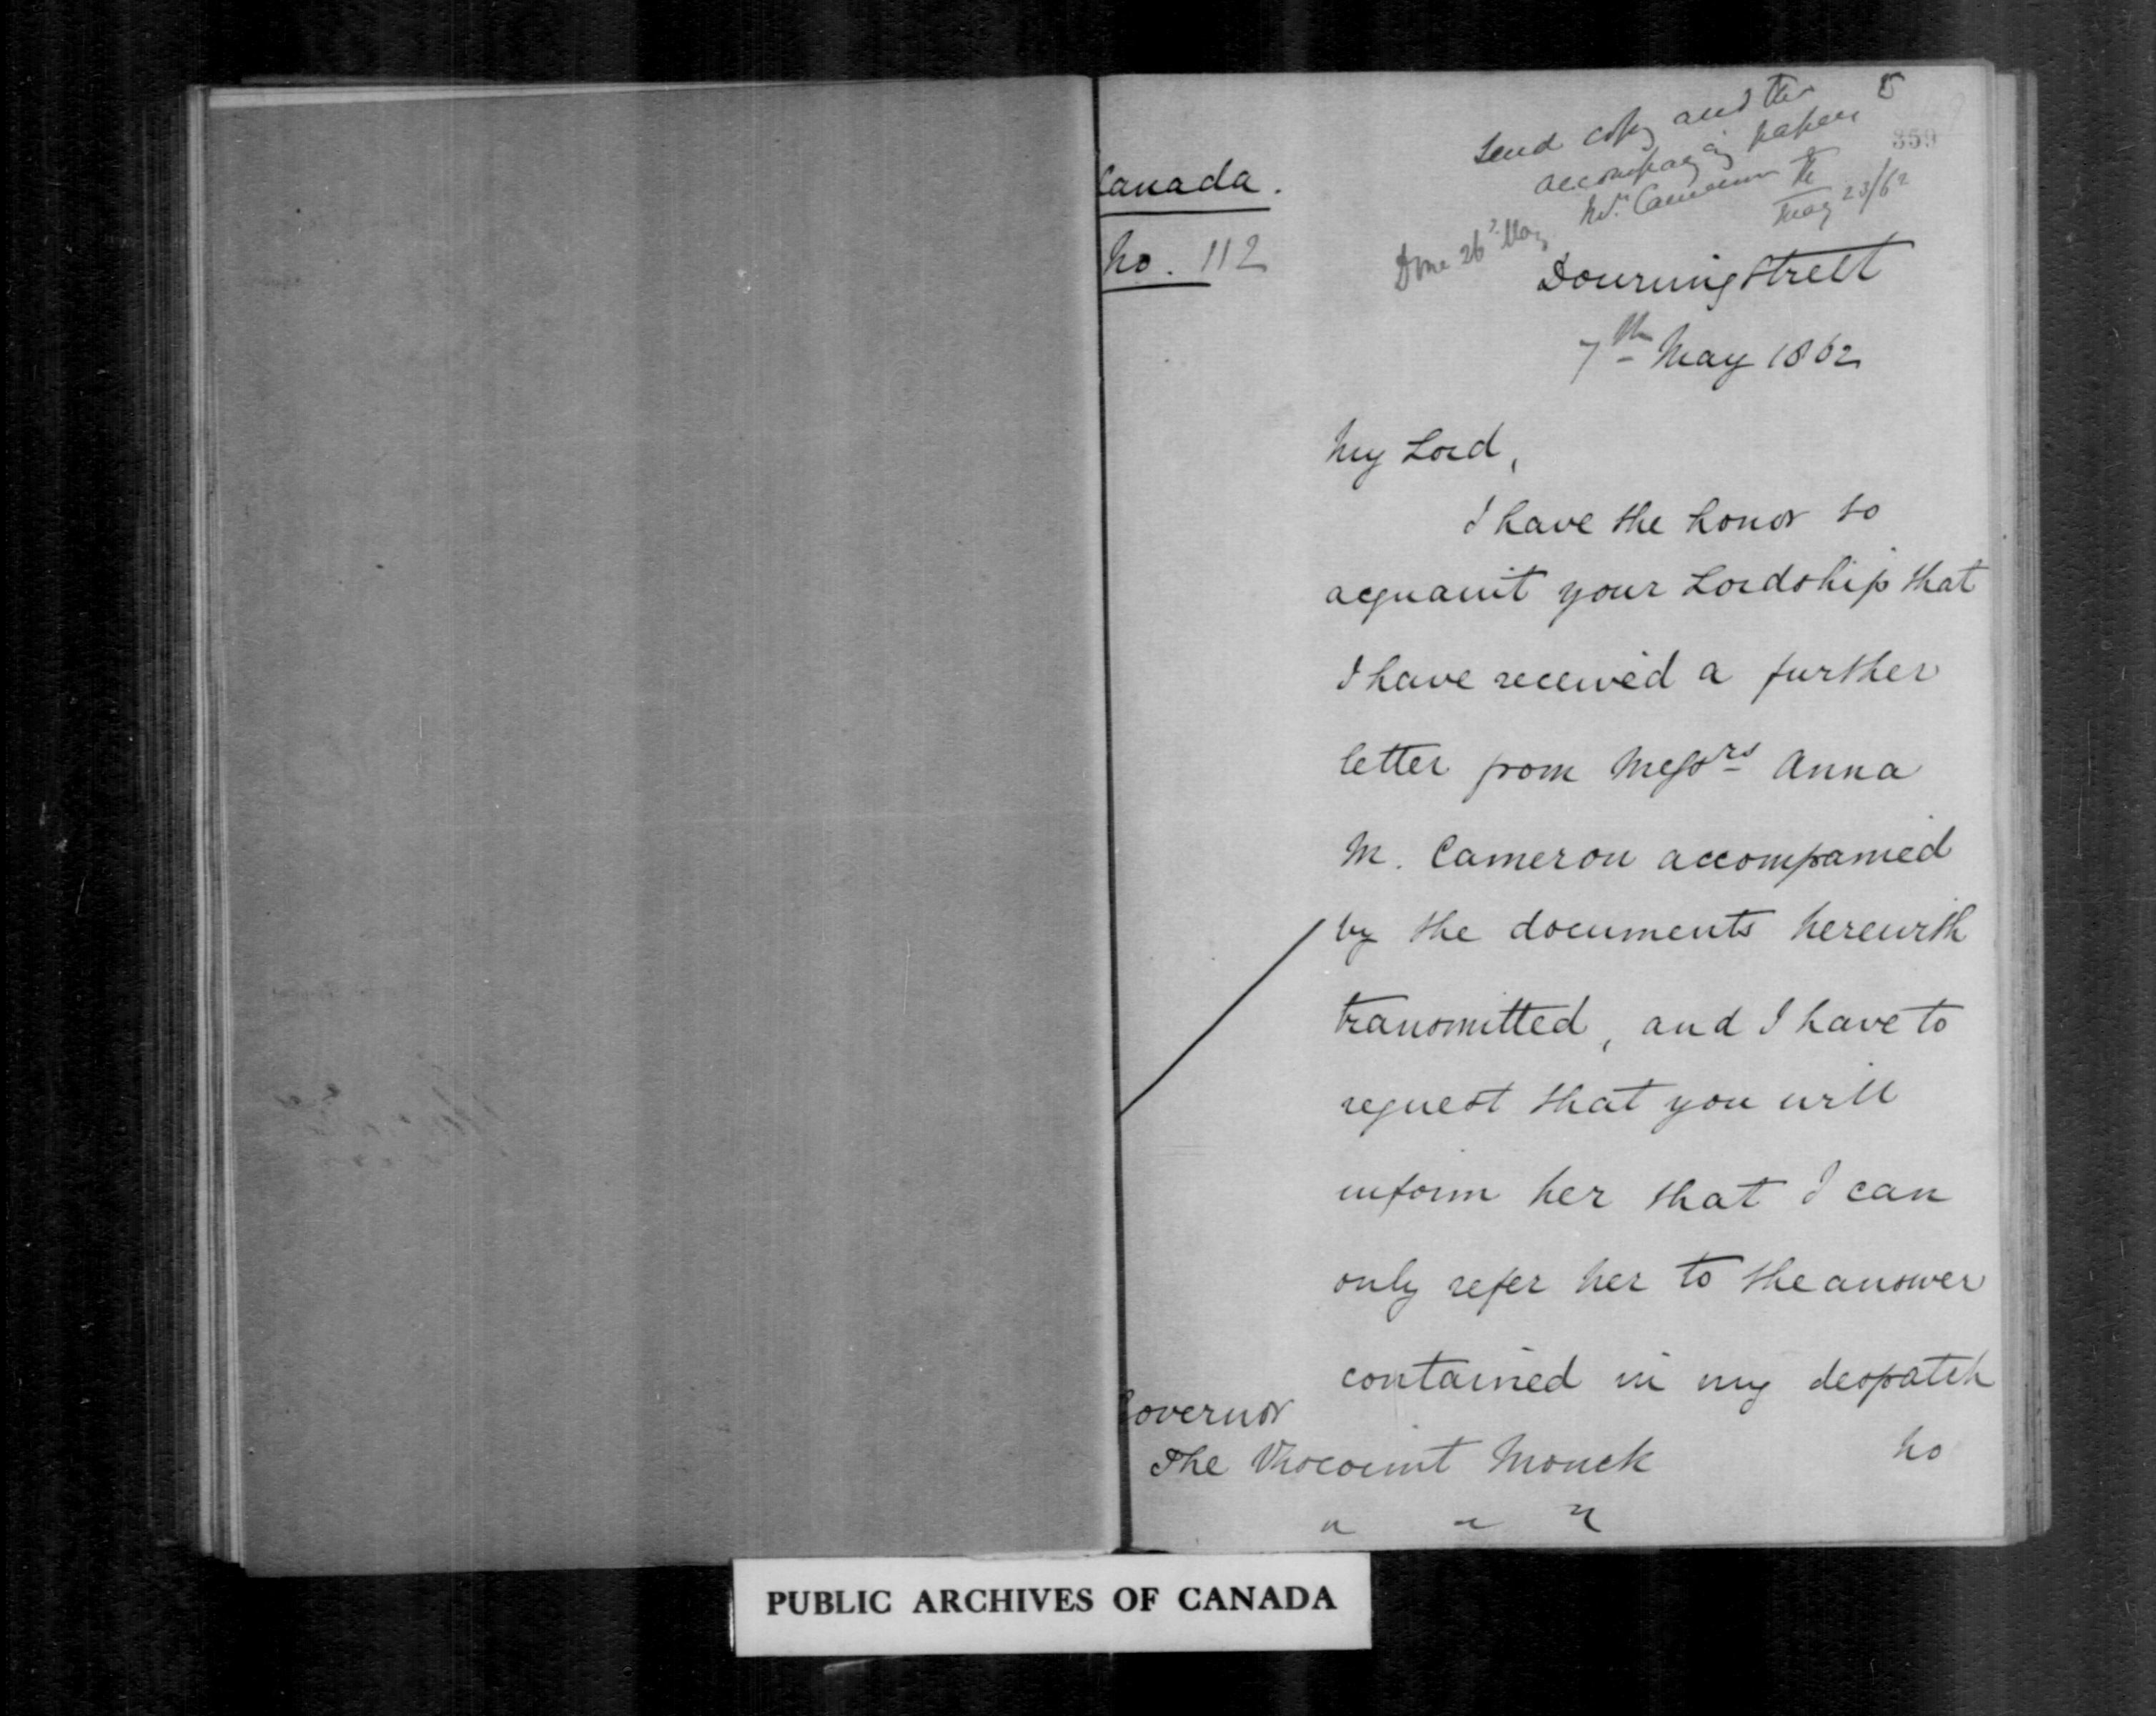 Send copy and the
accompanying papers
Mrs. Cameron
May 23/62
Done 26 May
359
Canada.
No. 112
Downing Street
7th May 1862
My Lord,
I have the honor to
acquaint your Lordship that
I have received a further
letter from Messrs Anna
M. Cameron accompanied
by the documents herewith
transmitted, and I have to
request that you will
inform her that I can
only refer her to the answer
contained in my despatch
No
Governor
The Viscount Monck
PUBLIC ARCHIVES OF CANADA